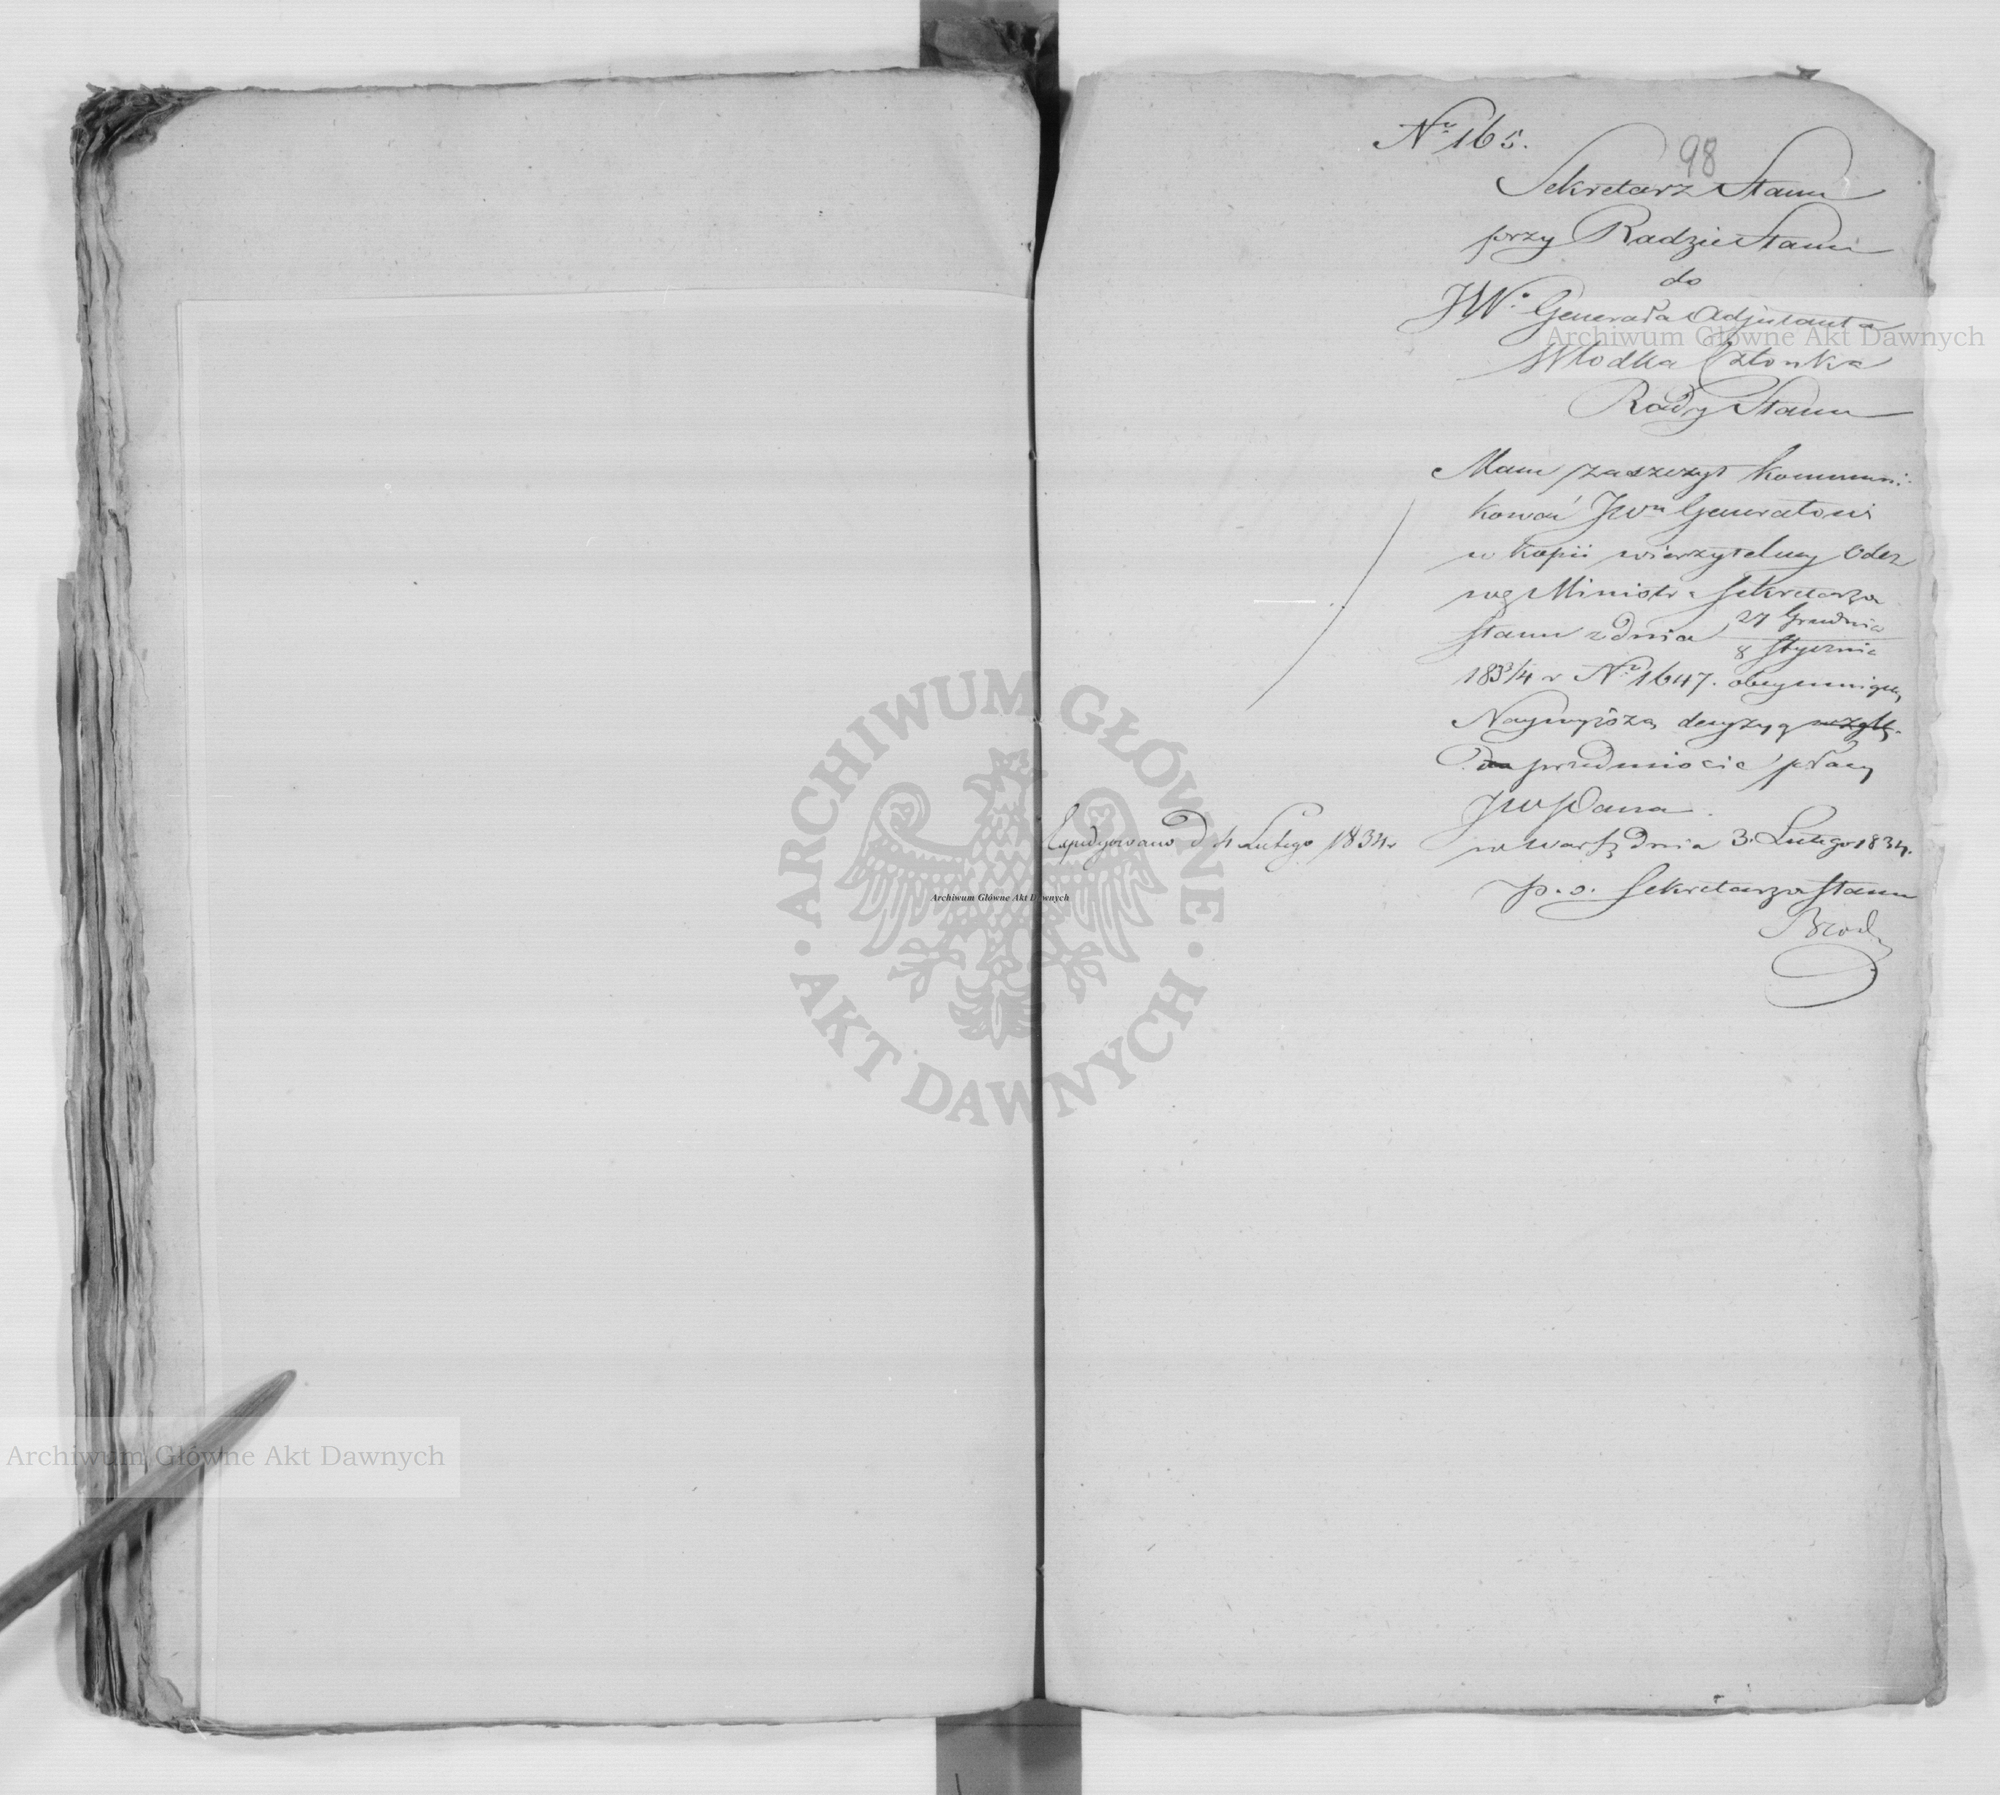 Nr 165.
98
Sekretarz Stanu
przy Radzie Stanu
do
JWo Generała Adjutanta
Włodka Członka
Rady Stanu
Mam zaszczyt kommuni-
kować JWu Generałowi
w kopii wierzytelney Odez
wę Ministra Sekretarza
Stanu z dnia 27 Grudnia / 8 Stycznia
1833/4 r Nr 1647. obeymuiącą
Naywyższą decyzyą
w przedmiocie płacy
JW Pana.
w Warsz. dnia 3. Lutego 1834.
Expedyowano d 4 Lutego 1834 r
p. o. Sekretarza Stanu
Archiwum Główne Akt Dawnych
ARCHIWUM GŁÓWNE
AKT DAWNYCH
Archiwum Główne Akt Dawnych
Archiwum Główne Akt Dawnych